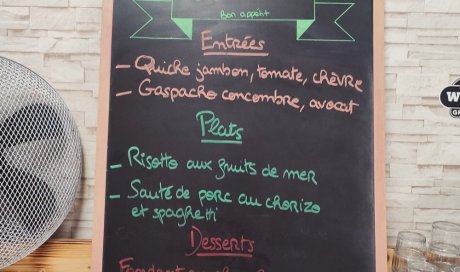 Bon appétit
Entrées
- Quiche jambon, tomate, chèvre
- Gaspacho concombre, avocat
Plats
- Risotto aux fruits de mer
- Sauté de porc au chorizo
et spaghetti
Desserts
Fondant